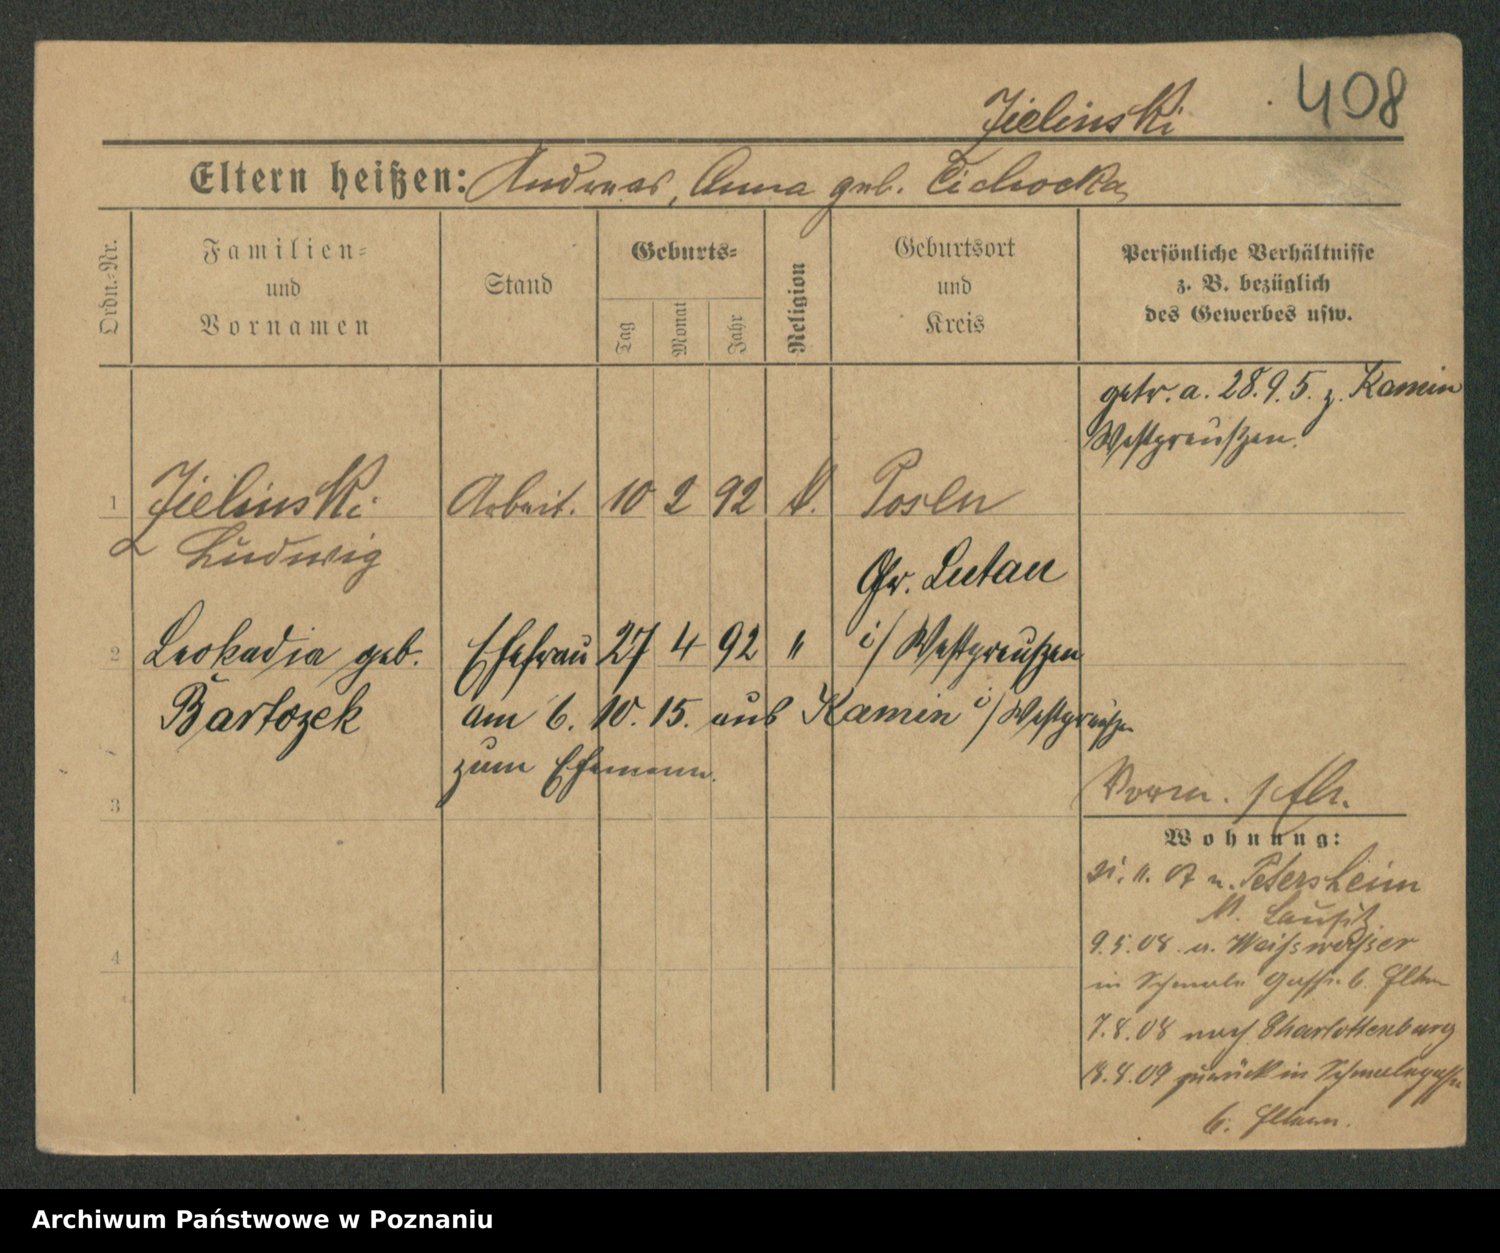 Zielinski
408
Eltern heißen: Andreas, Anna geb. Cichocka
Ordn.-Nr.
Familien-
und
Vornamen
Stand
Geburts-
Tag
Monat
Jahr
Religion
Geburtsort
und
Kreis
Persönliche Verhältnisse
z. B. bezüglich
des Gewerbes usw.
getr. a. 28.9.5. z. Kamin
Westpreußen.
1 Zielinski Arbeit. 10 2 92 k. Posen
Ludwig
Gr. Lutau
2 Leokadia geb. Ehefrau 27 4 92 " i/Westpreußen
Bartozek am 6. 10. 15. aus Kamin i/Westpreußen
zum Ehemann.
3
Wohnung:
11. 07 n. Petersheim
N. Lausitz
9.5.08. a. Weisswasser
4
in Schmale Gasse 6. Eltern
7.8.08 nach Charlottenburg
18.8.09 zurück in Schmalegasse
6. Eltern.
Archiwum Państwowe w Poznaniu